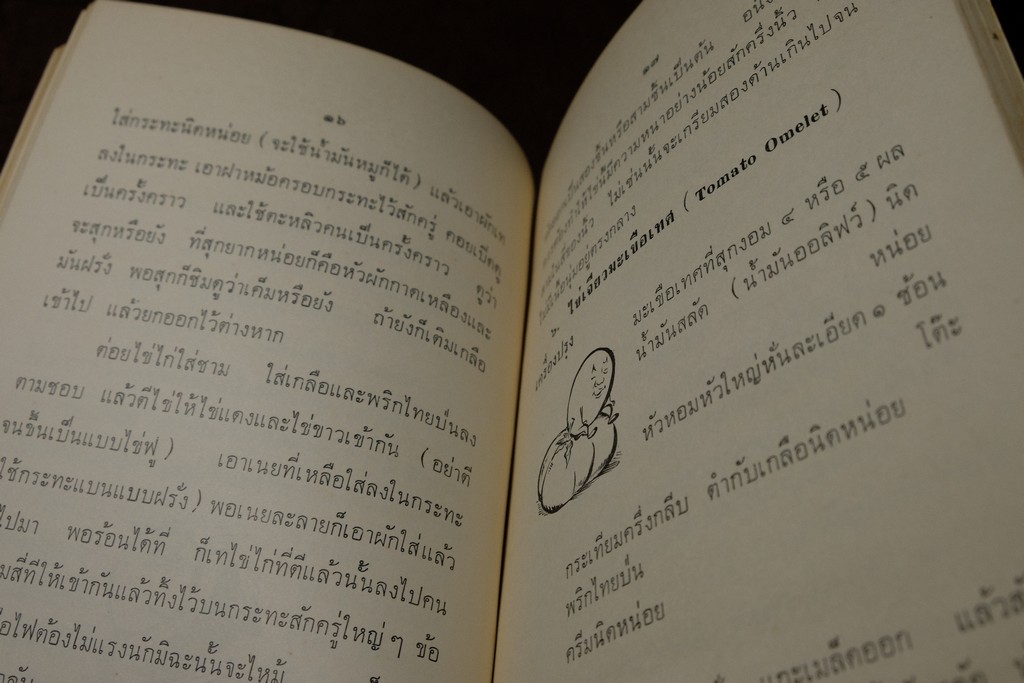 ๑๖
ใส่กระทะนิดหน่อย (จะใช้น้ำมันหมูก็ได้) แล้วเอาผักเท
ลงในกระทะ เอาฝาหม้อครอบกระทะไว้สักครู่ คอยเปิดดู
เป็นครั้งคราว และใช้ตะหลิวคนเป็นครั้งคราว ดูว่า
จะสุกหรือยัง ที่สุกยากหน่อยก็คือหัวผักกาดเหลืองและ
มันฝรั่ง พอสุกก็ชิมดูว่าเค็มหรือยัง ถ้ายังก็เติมเกลือ
เข้าไป แล้วยกออกไว้ต่างหาก
ต่อยไข่ไก่ใส่ชาม ใส่เกลือและพริกไทยป่นลง
ตามชอบ แล้วตีไข่ให้ไข่แดงและไข่ขาวเข้ากัน (อย่าตี
จนขึ้นเป็นแบบไข่ฟู) เอาเนยที่เหลือใส่ลงในกระทะ
ใช้กระทะแบนแบบฝรั่ง) พอเนยละลายก็เอาผักใส่แล้ว
ไปมา พอร้อนได้ที่ ก็เทไข่ไก่ที่ตีแล้วนั้นลงไปคน
สี่ทีให้เข้ากันแล้วทิ้งไว้บนกระทะสักครู่ใหญ่ ๆ ข้อ
ไฟต้องไม่แรงนักมิฉะนั้นจะไหม้
๑๗
หรือสามชิ้นเป็นต้น
ให้ไข่นี้มีความหนาอย่างน้อยสักครึ่งนิ้ว
ของนิ้ว ไม่เช่นนั้นจะเกรียมสองด้านเกินไปจน
นุ่มอยู่ตรงกลาง
๖. ไข่เจียวมะเขือเทศ (Tomato Omelet)
เครื่องปรุง มะเขือเทศที่สุกงอม ๔ หรือ ๕ ผล
น้ำมันสลัด (น้ำมันออลิฟว์) นิด
หน่อย
หัวหอมหัวใหญ่หั่นละเอียด ๑ ช้อน
โต๊ะ
กระเทียมครึ่งกลีบ ตำกับเกลือนิดหน่อย
พริกไทยป่น
ครีมนิดหน่อย
และเมล็ดออก